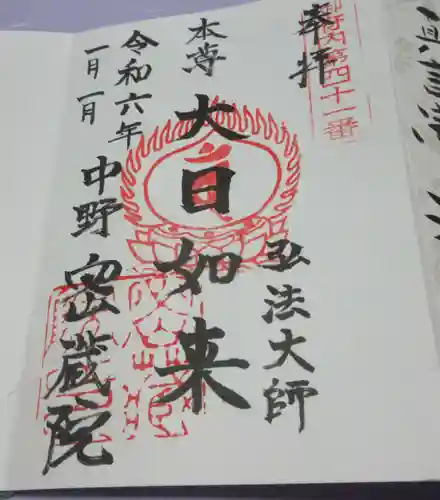 奉拝
御府内第四十一番
弘法大師
本尊
大日如来
令和六年
一月一日
中野
密蔵院